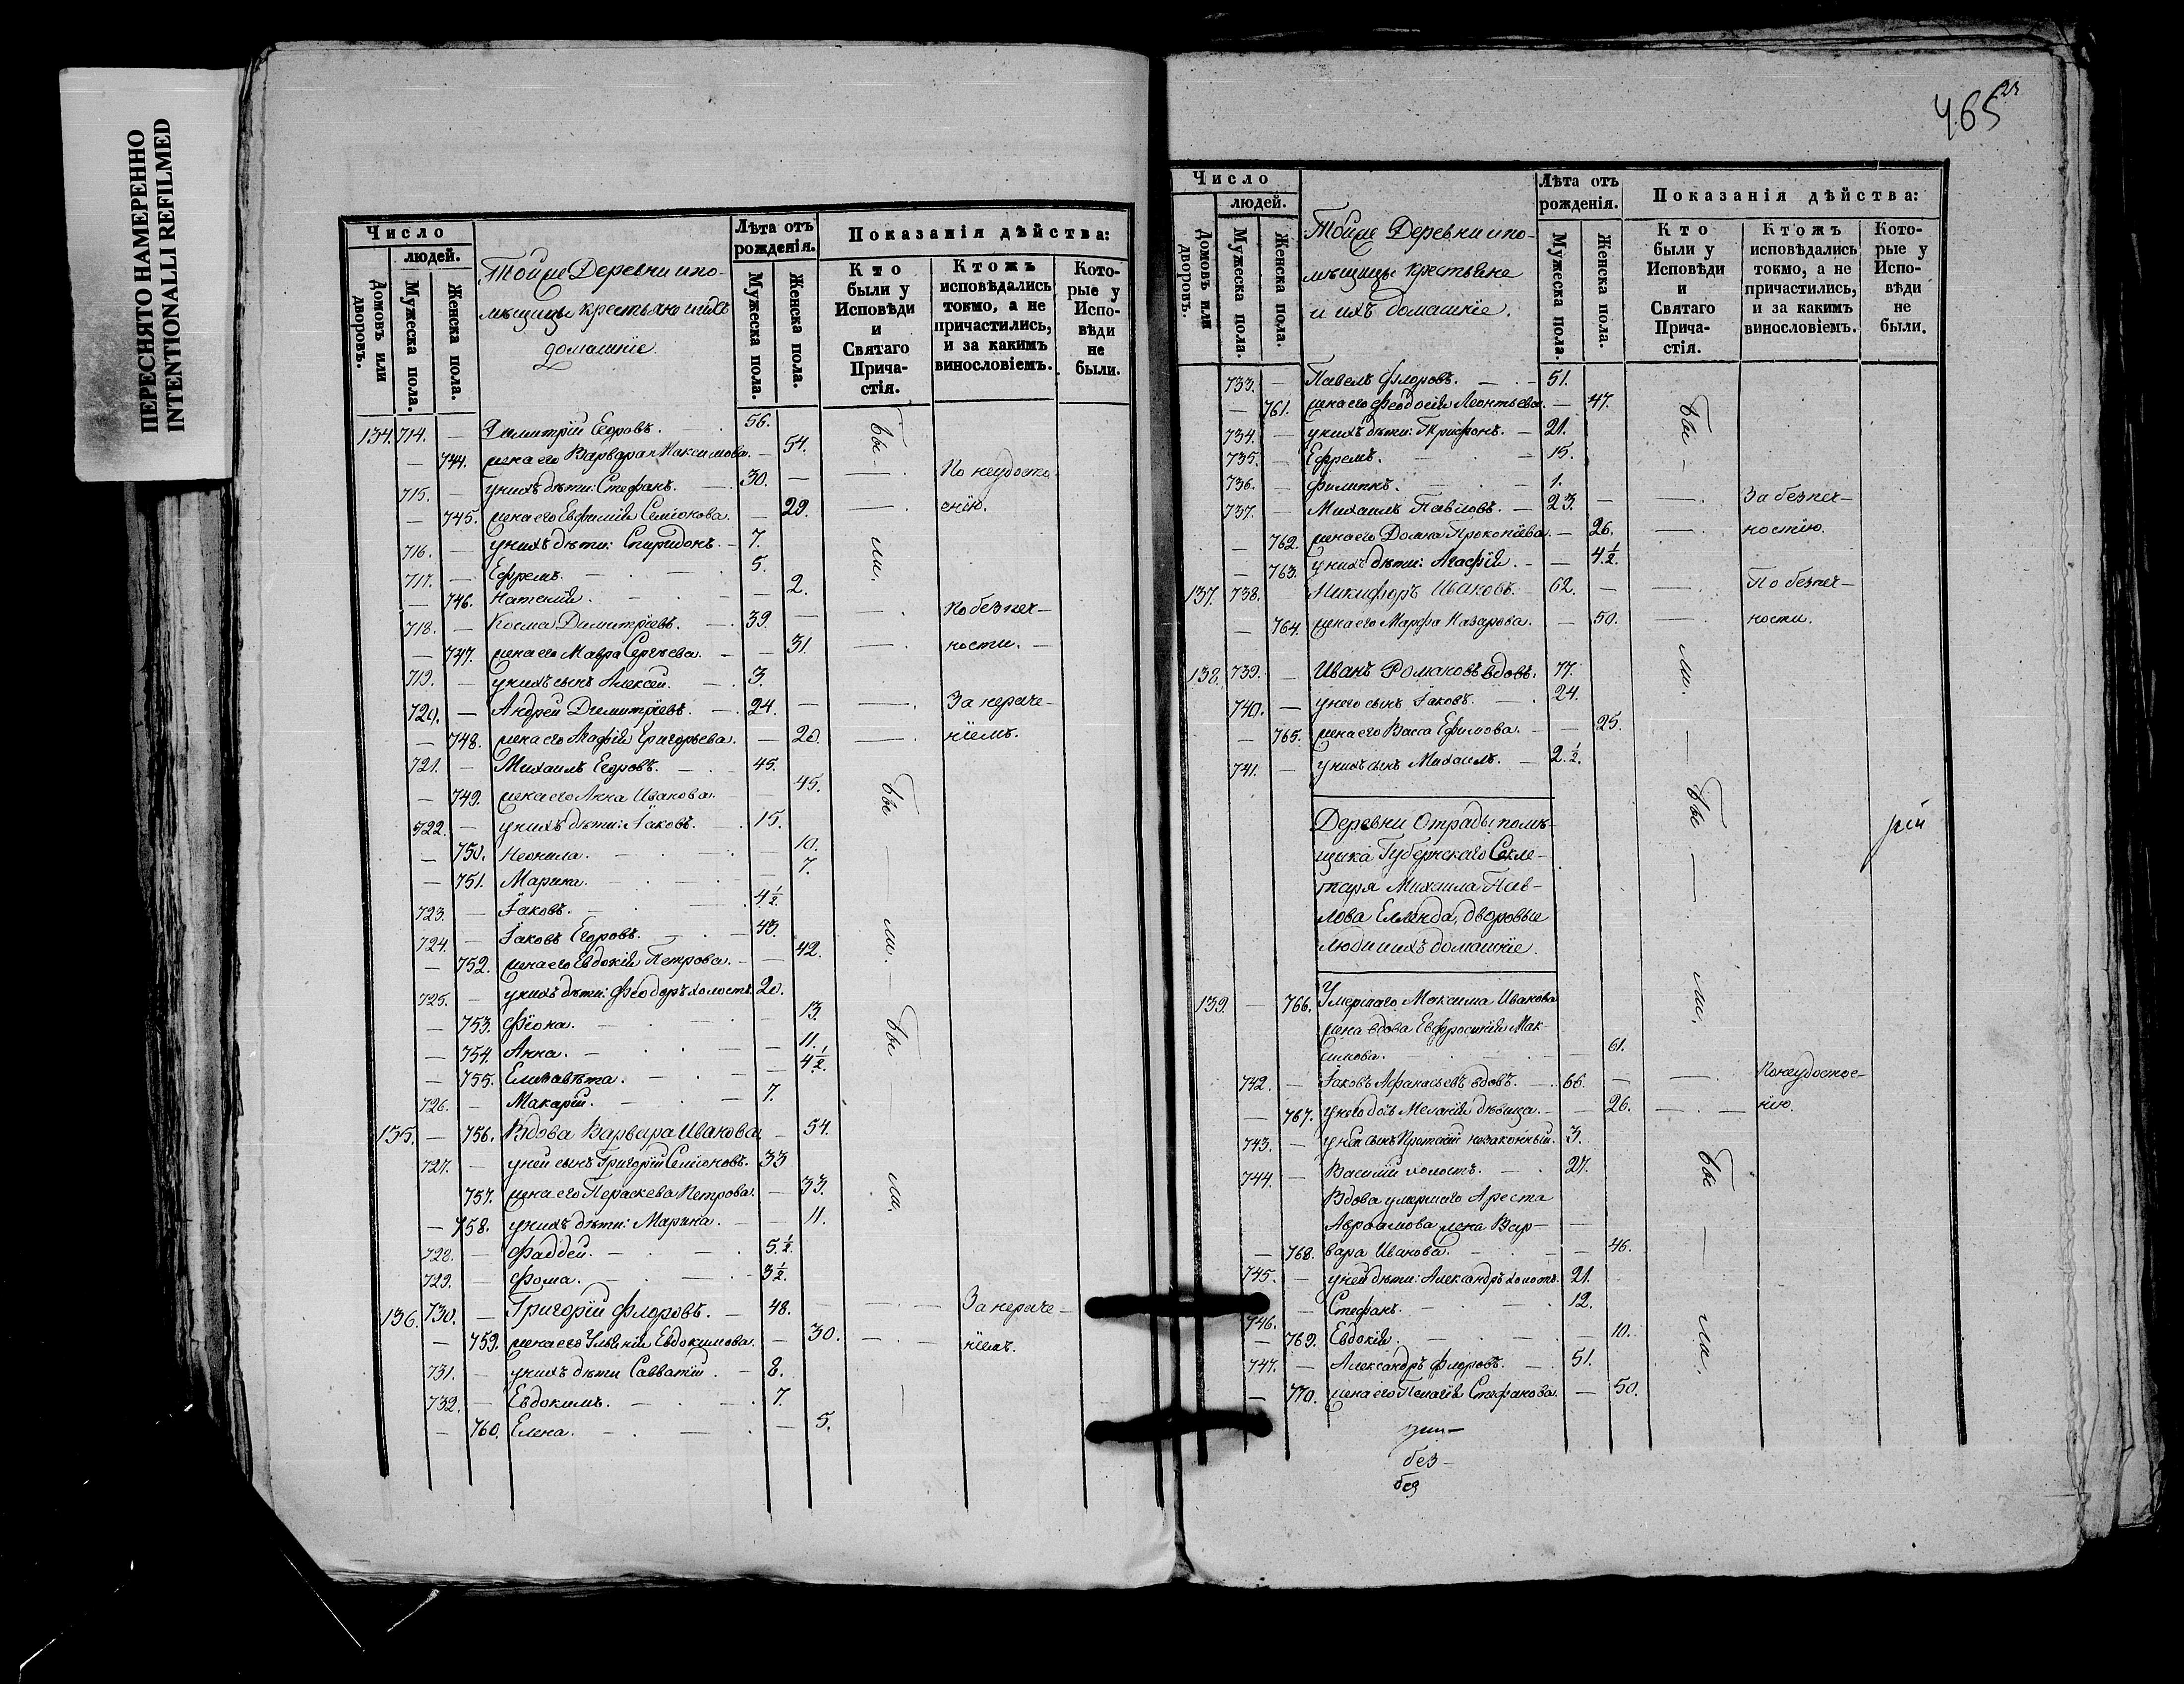 ПЕРЕСНЯТО НАМЕРЕННО
INTENTIONALLI REFILMED
Число
людей.
Домовъ или дворовъ.
Мужеска пола.
Женска пола.
Тойже Деревни и по-
мѣщицы крестьяне и ихъ
домашніе.
Лѣта отъ рожденія.
Мужеска пола.
Женска пола.
Показанія дѣйства:
Кто были у Исповѣди и Святаго Прича-стія.
Ктожъ исповѣдались токмо, а не причастились, и за какимъ винословіемъ.
Кото-рые у Испо-вѣди не были.
134. 714. — Димитрій Егоровъ. — 56.
— 744. жена его Варвара Максимова. — 54.
715. — у нихъ дѣти: Стефанъ. — 30. — По неудосто-
— 745. жена его Евфимія Семіонова. — 29. — енію.
716. — у нихъ дѣти: Спиридонъ. — 7.
717. — Ефремъ. — 5.
— 746. Наталія. — 2.
718. — Косма Димитріевъ. — 39. — По безпеч-
— 747. жена его Мавра Сергѣева. — 31. — ности. —
719. — у нихъ сынъ Алексей. — 3.
720. — Андрей Димитріевъ. — 24. — За нераче-
— 748. жена его Агафія Григорьева. — 20. — ніемъ.
721. — Михаилъ Егоровъ. — 45.
— 749. жена его Анна Иванова. 45.
722. — у нихъ дѣти: Іаковъ. — 15.
— 750. Неонила. — 10.
— 751. Марина. — 7.
723. — Іаковъ. — 4 1/2.
724. — Іаковъ Егоровъ. — 43.
— 752. жена его Евдокія Петрова. — 42.
725. — у нихъ дѣти: Феодоръ холостъ. 20.
— 753. Фіона. — 13.
— 754. Анна. — 11.
— 755. Елисавѣта. — 4 1/2.
726. — Макарій. — 7.
135. — 756. Вдова Варвара Иванова. — 54.
727. — у ней сынъ Григорій Семіоновъ. 33
757. жена его Параскева Петрова. — 33.
— 758. у нихъ дѣти: Марина. — 11.
728. — Фаддей. — 5 1/2.
729. — Фома. — 3 1/2.
136. 730. — Григорій Флоровъ. — 48. — За нераче-
— 759. жена его Ульянія Евдокимова. — 30. — ніемъ.
731. — у нихъ дѣти Савватій. — 8.
732. — Евдокимъ. — 7.
— 760. Елена. — 5.
бы — ли.
бы — ли.
бы — ли.
465
Число
людей.
Домовъ или дворовъ.
Мужеска пола.
Женска пола.
Тойже Деревни и по-
мѣщицы крестьяне
и ихъ домашніе.
Лѣта отъ рожденія.
Мужеска пола.
Женска пола.
Показанія дѣйства:
Кто были у Исповѣди и Святаго Прича-стія.
Ктожъ исповѣдались токмо, а не причастились, и за какимъ винословіемъ.
Кото-рые у Испо-вѣди не были.
733. — Павелъ Флоровъ. — 51.
— 761. жена его Феодосія Леонтьева. — 47.
734. — у нихъ дѣти: Трифонъ. — 21.
735. — Ефремъ. — 15.
736. — Филиппъ. — 1.
737. — Михаилъ Павловъ. — 23. — За безпеч-
— 762. жена его Домна Прокопіева. — 26. — ностію.
— 763. у нихъ дѣти: Агафія. — 4 1/2.
137. 738. Никифоръ Ивановъ. — 62. — По безпеч-
— 764. жена его Марфа Назарова. — 50. — ности.
138. 739. — Иванъ Романовъ вдовъ. 77.
740. — у него сынъ Іаковъ. — 24.
— 765. жена его Васса Ефимова. — 25.
741. — у нихъ сынъ Михаилъ. — 2 1/2.
Деревни Отрады помѣ-
щика Губернскаго Секре-
таря Михаила Пав-
лова дворовые
люди и ихъ домашніе.
139. — 766. Умершаго Максима Иванова
жена вдова Евфросинія Мак-
симова. — 61.
742. — Іаковъ Афанасьевъ вдовъ. — 66. — По неудостое-
— 767. у него дочь Меланія дѣвица. — 26. — нію.
743. — у ней сынъ незаконный. 3.
744. — Василій холостъ. — 27.
Вдова умершаго Ареста
Авраамова жена Вар- —
— 768. вара Иванова. — 46.
745. — у ней дѣти: Александръ холостъ. 21.
746. — Стефанъ. — 12.
— 769. Евдокія. — 10.
747. — Александръ Флоровъ. — 51.
— 770. жена его Пелагія Стефанова. — 50.
бы — ли.
бы — ли.
бы — ли.
рей
без-
без